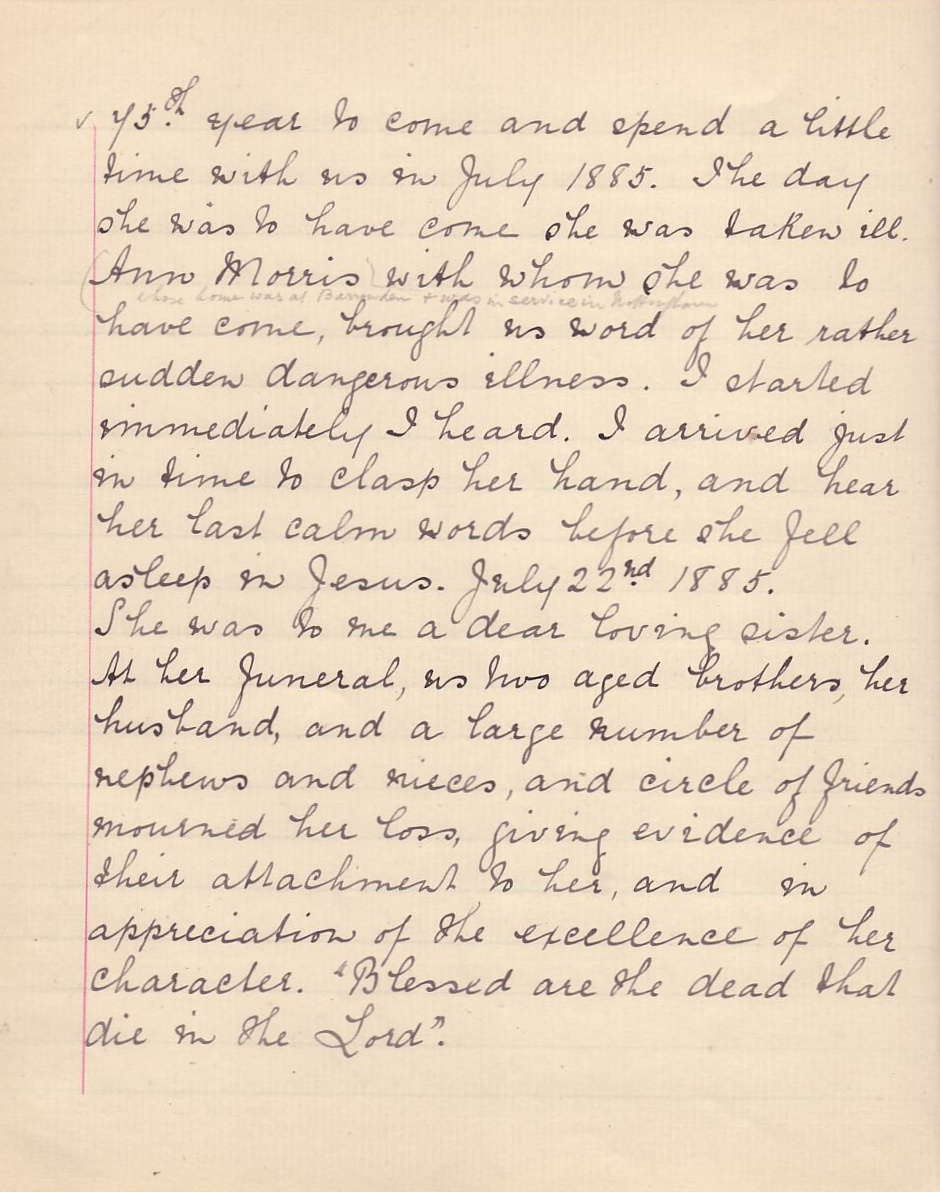 ✓ 75th year to come and spend a little
time with us in July 1885. The day
she was to have come she was taken ill.
(Ann Morris) with whom she was to
whose home was at Barrowden + was in service in Nottingham
have come, brought us word of her rather
sudden dangerous illness. I started
immediately I heard. I arrived just
in time to clasp her hand, and hear
her last calm words before she fell
asleep in Jesus. July 22nd 1885.
She was to me a dear loving sister.
At her funeral, us two aged brothers, her
husband, and a large number of
nephews and nieces, and circle of friends
mourned her loss, giving evidence of
their attachment to her, and in
appreciation of the excellence of her
character. "Blessed are the dead that
die in the Lord".